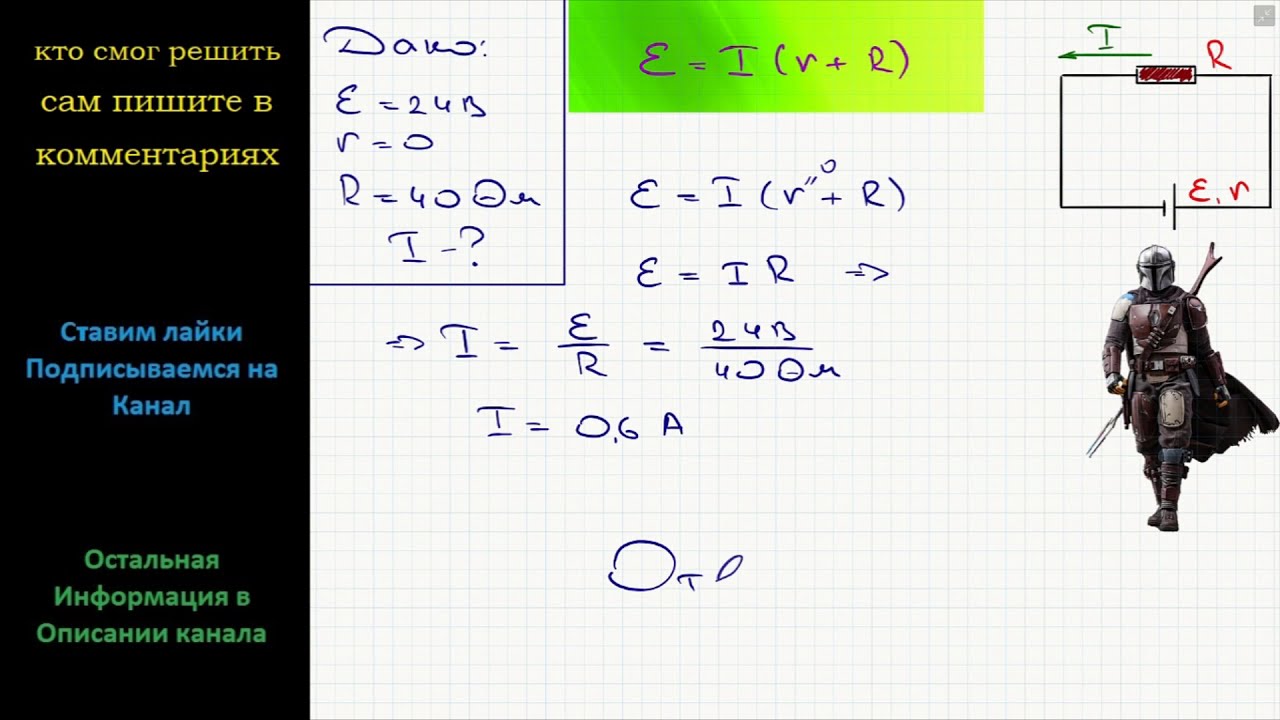 кто смог решить
сам пишите в
комментариях
Ставим лайки
Подписываемся на
Канал
Остальная
Информация в
Описании канала
Дано:
Ɛ = 24В
r = 0
R = 40 Ом
I - ?
Ɛ = I (r + R)
Ɛ = I (r'' 0 + R)
Ɛ = I R =>
=> I = Ɛ/R = 24В/40 Ом
I = 0,6 А
От
I
R
Ɛ, r